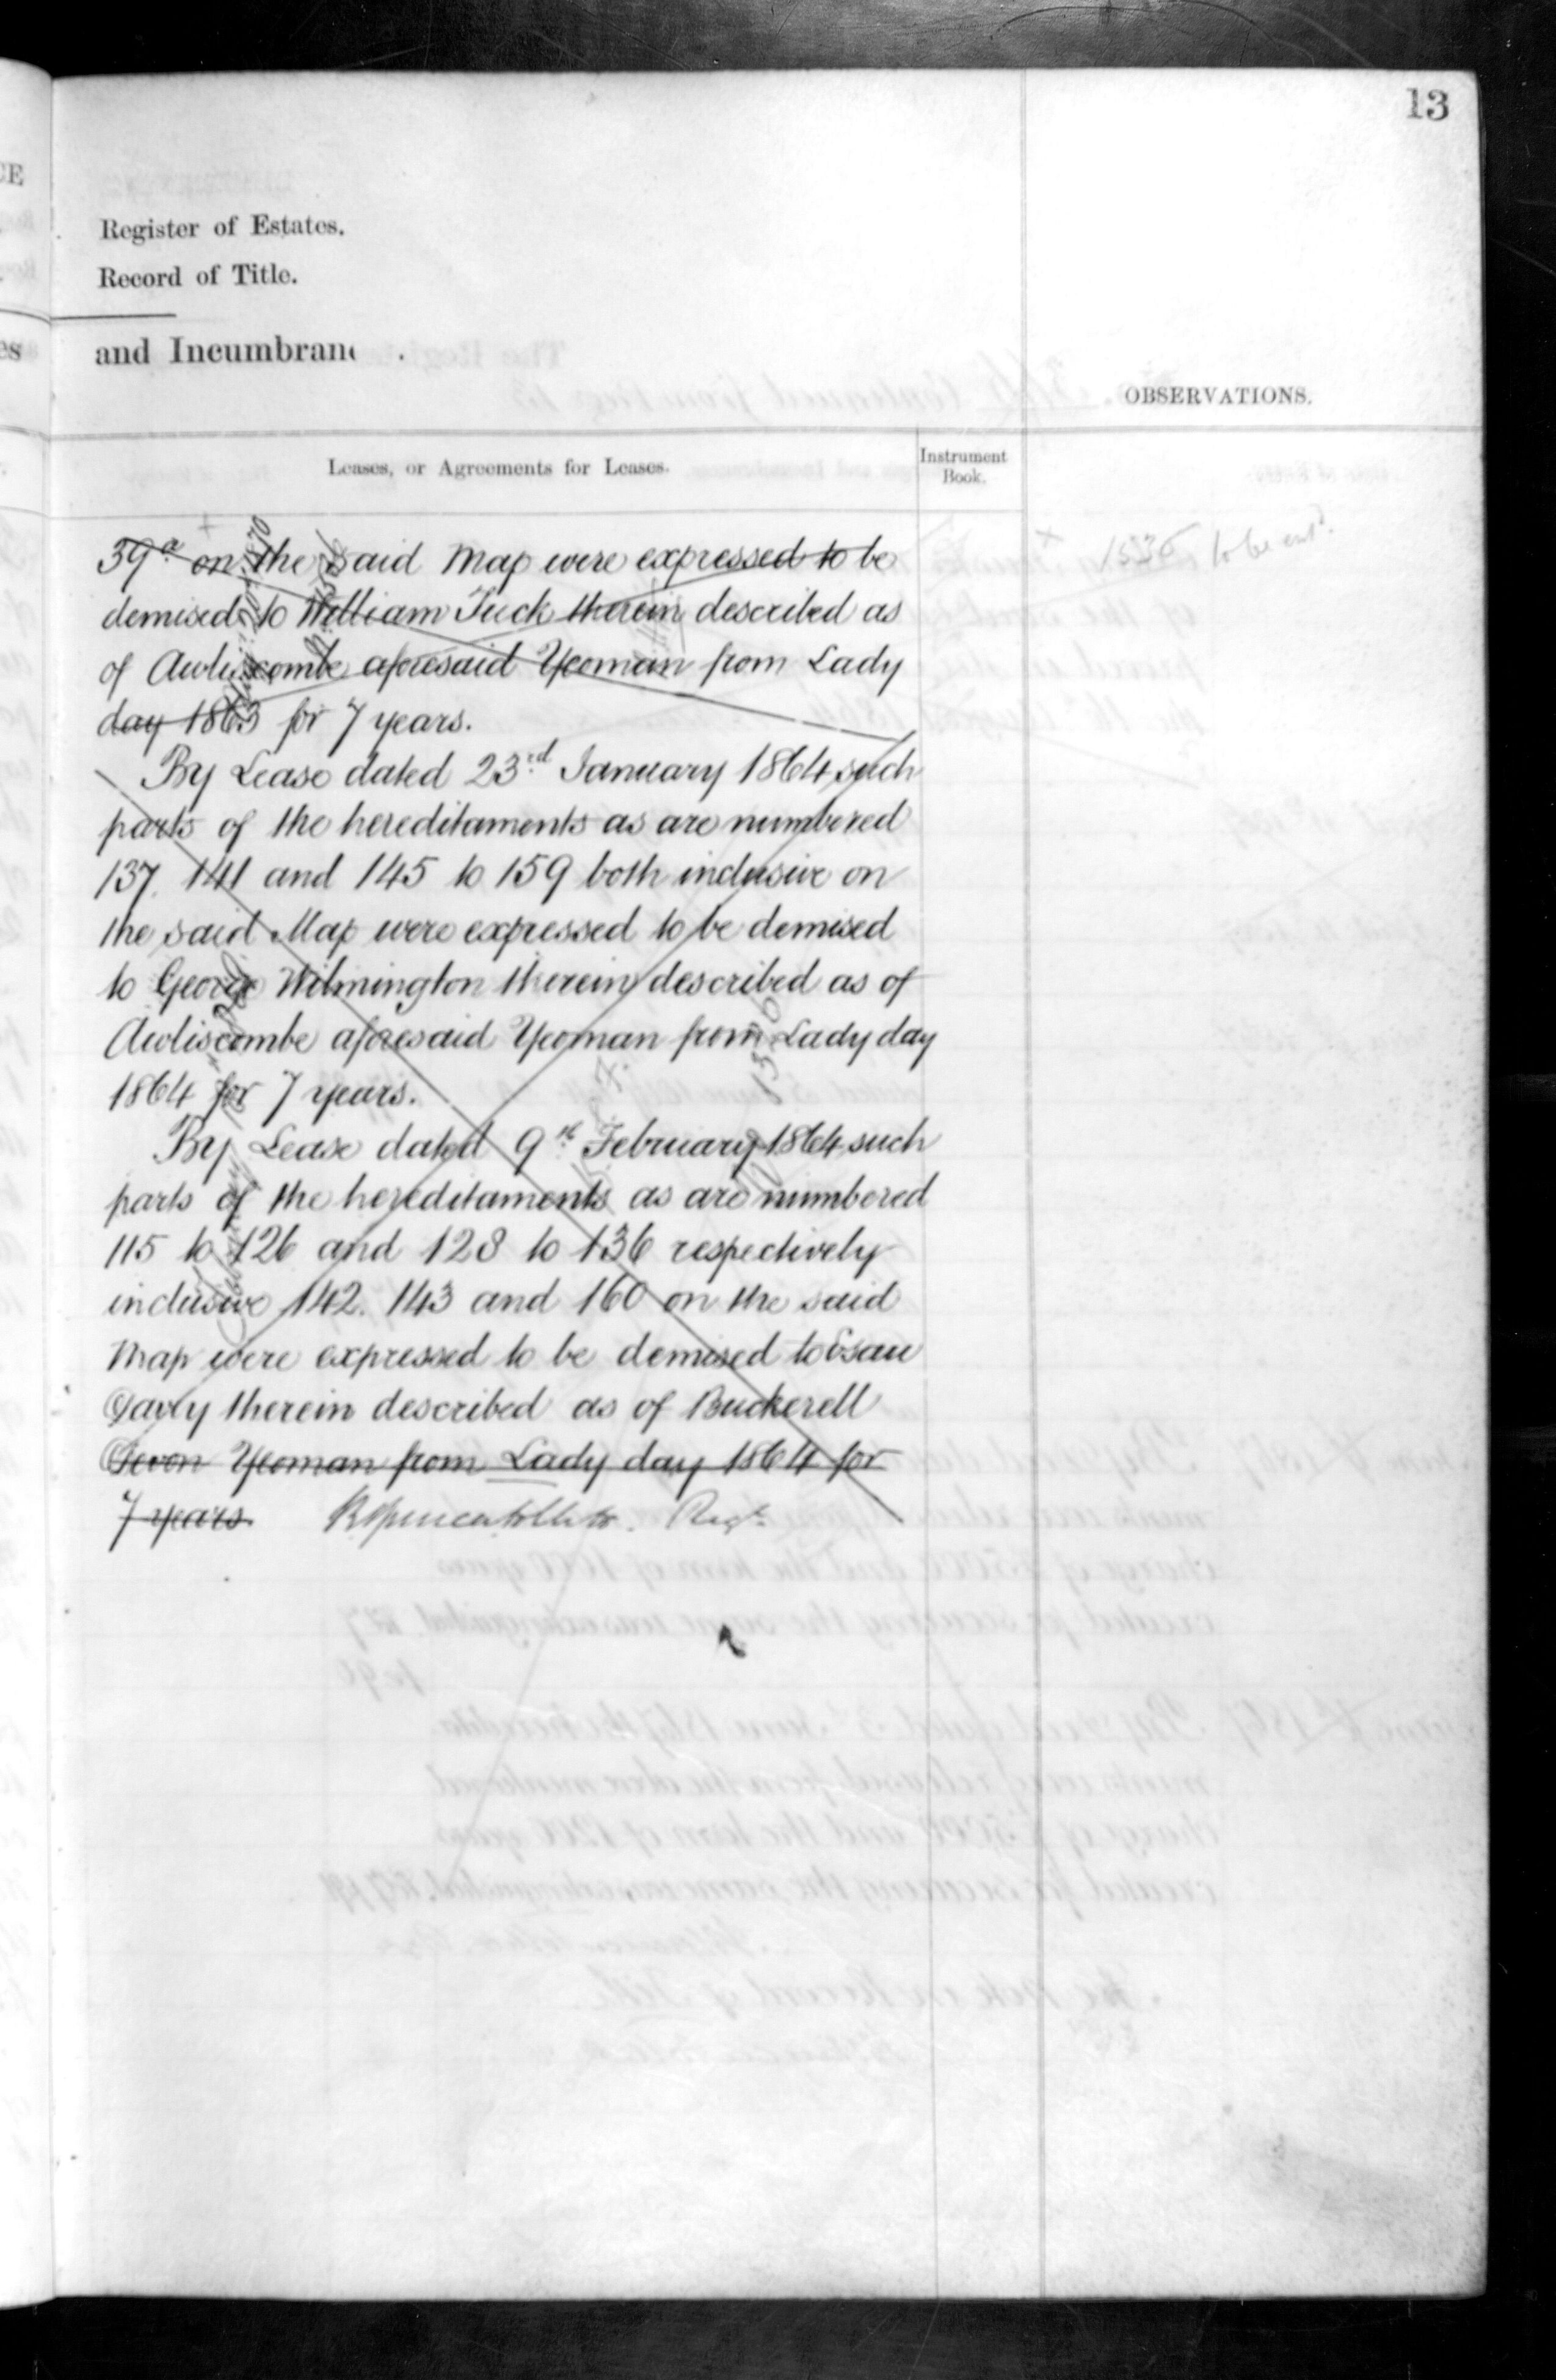 13
Register of Estates.
Record of Title.
and Incumbranc
OBSERVATIONS.
Leases, or Agreements for Leases.
Instrument
Book.
39a on the said Map were expressed to be
demised to William Tuck therein described as
of Awliscombe aforesaid Yeoman from Lady
day 1863 for 7 years.
By Lease dated 23rd January 1864 such
parts of the hereditaments as are numbered
137. 141 and 145 to 159 both inclusive on
the said Map were expressed to be demised
to George Wilmington therein described as of
Awliscombe aforesaid Yeoman from Lady day
1864 for 7 years.
By Lease dated 9th February 1864 such
parts of the hereditaments as are numbered
115 to 126 and 128 to 136 respectively
inclusive 142. 143 and 160 on the said
Map were expressed to be demised to Esau
Davy therein described as of Buckerell
Devon Yeoman from Lady day 1864 for
7 years Regr.
x 1536 to be entd.